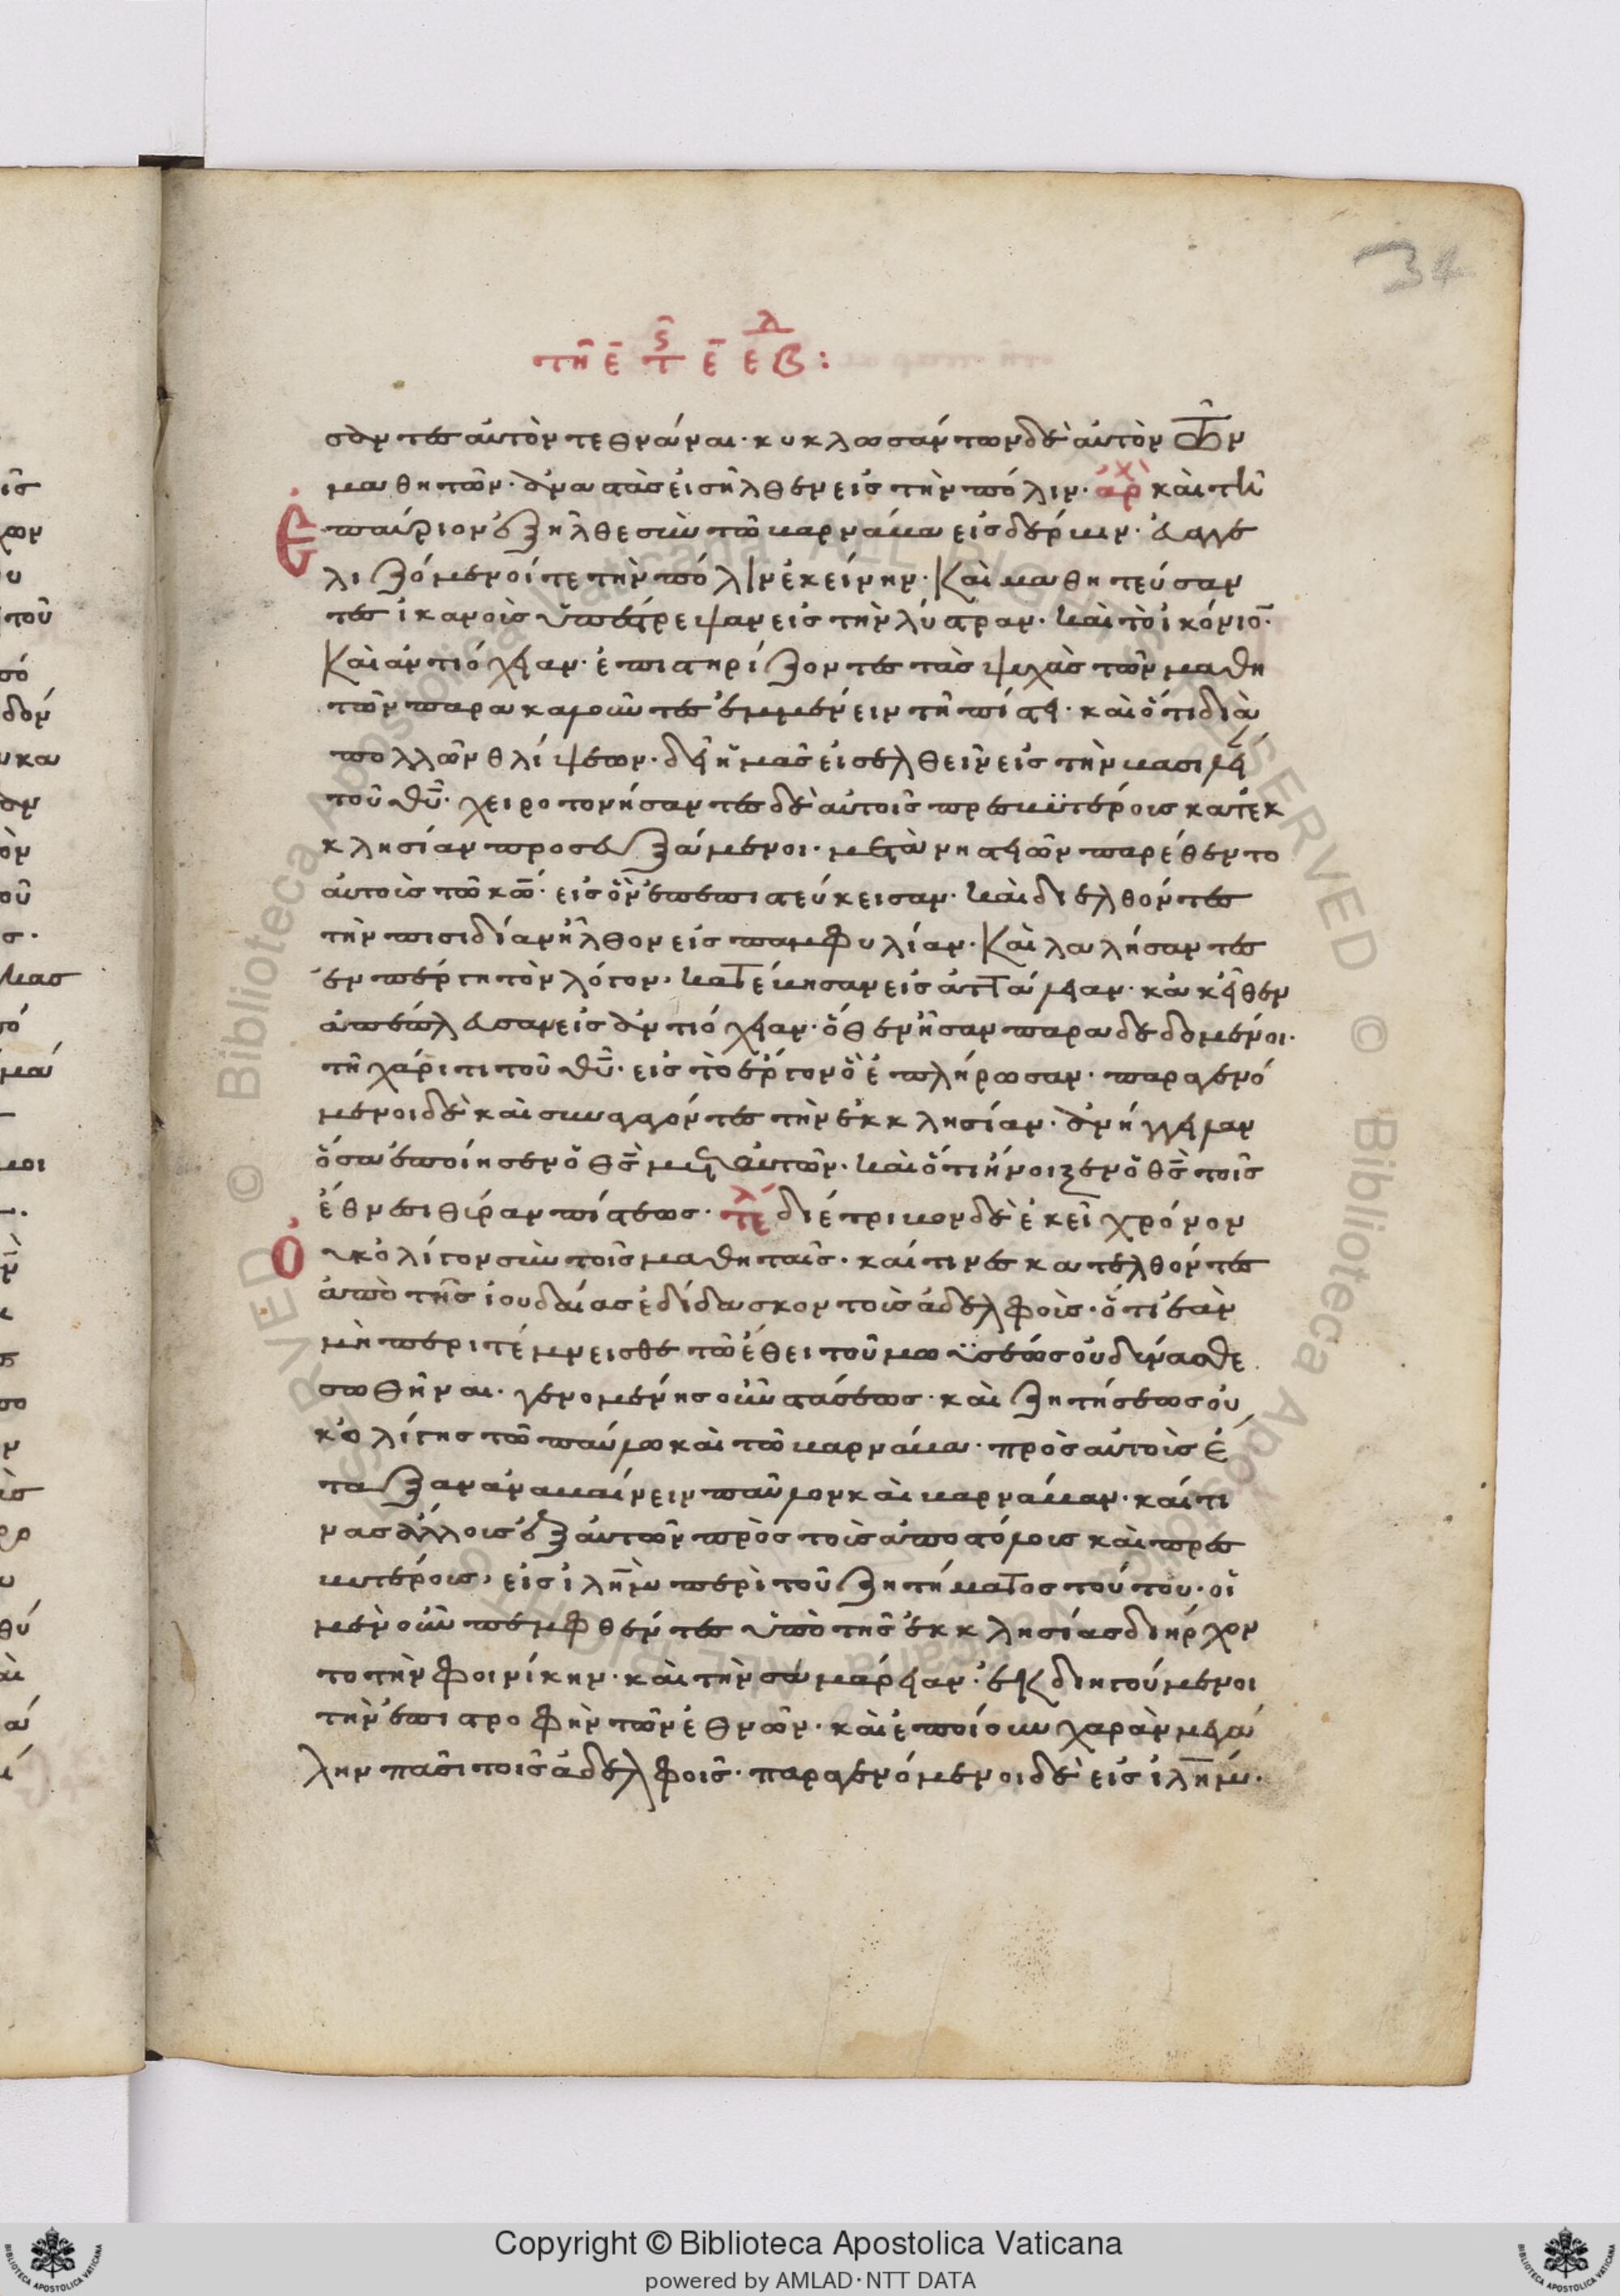 34
τῆ ε̄ τ ϛ̑ ε̄ ε β λ :
σαντες αὐτὸν τεθνάναι· κυκλωσάντων δὲ αὐτὸν τῶν
μαθητῶν· ἀναστὰς εἰσῆλθεν εἰς τὴν πόλιν· ἀρχ καὶ τῆ
ἐπαύριον ἐξῆλθε σὺν τῶ βαρνάβα εἰς δέρβην· εὐαγγε
λιζόμενοί τε τὴν πόλιν ἐκείνην· καὶ μαθητεύσαν
τες ἱκανοὺς ὑπέστρεψαν εἰς τὴν λύστραν· καὶ τὸ ἰκόνιο̅·
καὶ ἀντιόχειαν· ἐπιστηρίζοντες τὰς ψυχὰς τῶν μαθη
τῶν παρακαλοῦντες ἐμμένειν τῆ πίστει· καὶ ὅτι διὰ
πολλῶν θλίψεων· δεῖ ἡμᾶς εἰσελθεῖν εἰς τὴν βασιλεί
τοῦ θυ̅· χειροτονήσαντες δὲ αὐτοῖς πρεσβϋτέρους κατ' ἐκ
κλησίαν προσευξάμενοι· μετὰ νηστειῶν παρέθεντο
αὐτοὺς τῶ κω̅· εἰς ὃν πεπιστεύκεισαν· καὶ διελθόντες
τὴν πισιδίαν ἦλθον εἰς παμφυλίαν· καὶ λαλήσαντες
ἐν πέργη τὸν λόγον, κατέβησαν εἰς ἀττάλειαν· κἀκεῖθεν
ἀπέπλευσαν εἰς ἀντιόχειαν· ὅθεν ἦσαν παραδεδομένοι·
τῆ χάριτι τοῦ θυ̅· εἰς τὸ ἔργον ὃ ἐπλήρωσαν· παραγενό
μενοι δὲ καὶ συναγαγόντες τὴν ἐκκλησίαν· ἀνήγγειλαν
ὅσα ἐποίησεν ὁ θς̅ μετ' αὐτῶν· καὶ ὅτι ἤνοιξεν ὁ θς̅ τοῖς
ἔθνεσι θύραν πίστεως· τελ διέτριβον δὲ ἐκεῖ χρόνον
οὐκ ὀλίγον σὺν τοῖς μαθηταῖς· καί τινες κατελθόντες
ἀπὸ τῆς ἰουδαίας ἐδίδασκον τοὺς ἀδελφοὺς· ὅτι ἐὰν
μὴ περιτέμνεισθε τῶ ἔθει τοῦ μωϋσέως οὐ δύνασθε
σωθῆναι· γενομένης οὖν στάσεως· καὶ ζητήσεως οὐ
κ ὀλίγης τῶ παύλω καὶ τῶ βαρνάβα· πρὸς αὐτοὺς ἔ
ταξαν ἀναβαίνειν παῦλον καὶ βαρνάβαν· καί τι
νας ἄλλους ἐξ αὐτῶν πρὸς τοὺς ἀποστόλους καὶ πρεσ
βυτέρους, εἰς ἰλη̅μ περὶ τοῦ ζητήματος τούτου· οἱ
μὲν οὖν πεμφθέντες ὑπὸ τῆς ἐκκλησίας διήρχον
το τὴν φοινίκην· καὶ τὴν σαμάρειαν· ἐκδιηγούμενοι
τὴν ἐπιστροφὴν τῶν ἐθνῶν· καὶ ἐποίουν χαρὰν μεγά
λην πᾶσι τοῖς ἀδελφοῖς· παραγενόμενοι δὲ εἰς ἰλη̅μ·
Copyright © Biblioteca Apostolica Vaticana
powered by AMLAD·NTT DATA